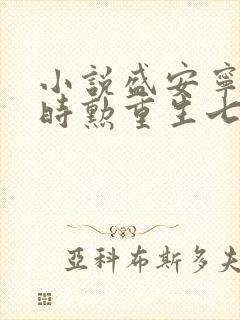 小說盛安寧
時勳重生七
亞科布斯多夫